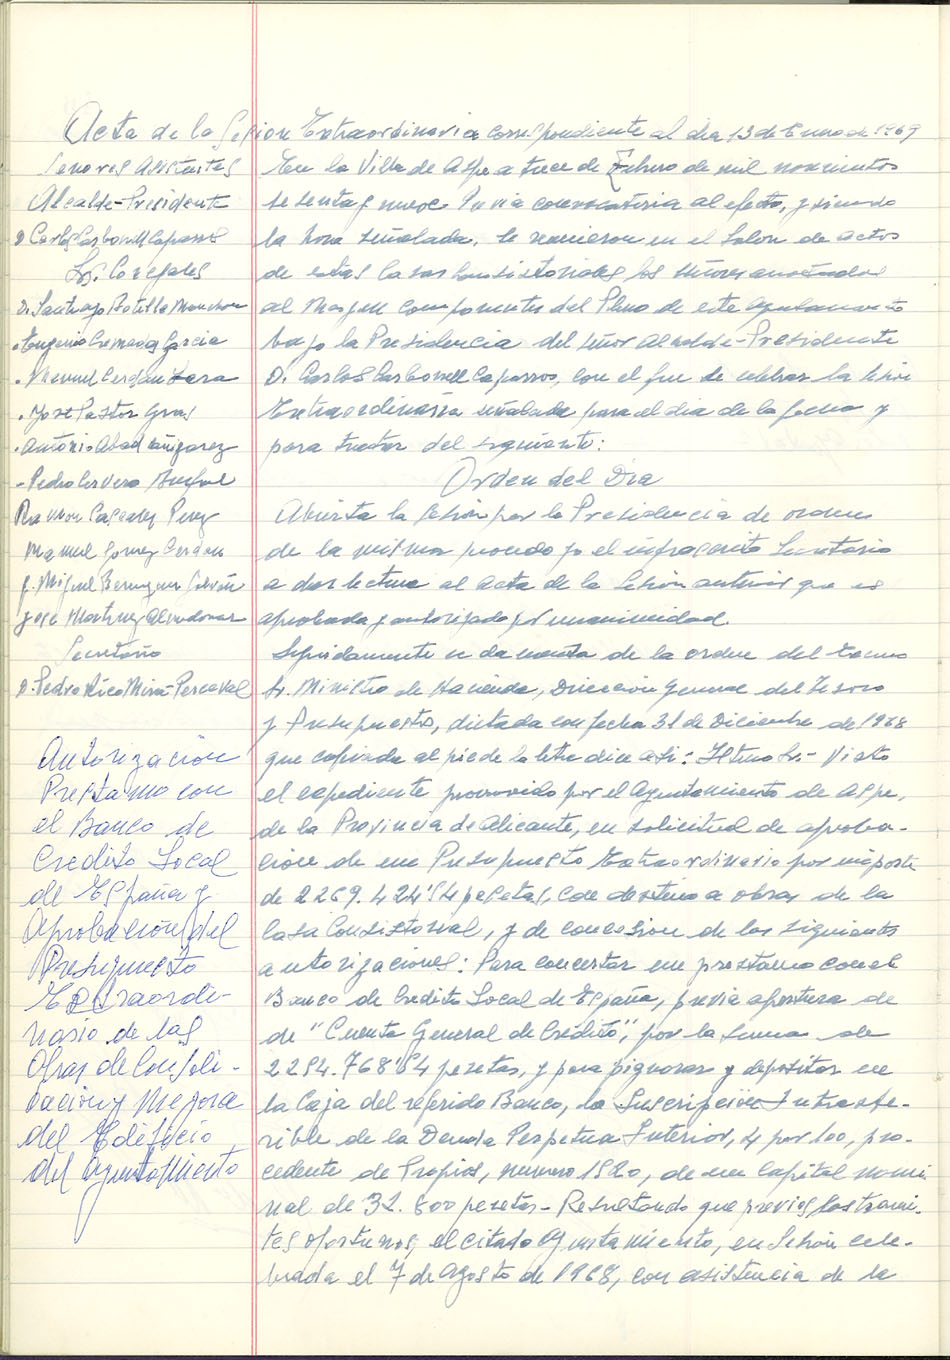 Acta de la Sesion Extraordinaria correspondiente al dia 13 de Enero de 1969
Señores Asistentes
Alcalde-Presidente
D Carlos Carbonell Caparros
Srs. Concejales
D. Santiago Botella
. Eugenio Cremades Garcia
. Manuel Cerdan Lara
. Jose Pastor Gras
. Antonio Abad
- Pedro Cervera
Ramon Caparros Perez
Manuel Gomez Cerdan
J. Miguel Berenguer Galvañ
Jose Martinez Almodovar
Secretario
D. Pedro Rico Mira-Perceval
Autorización
Prestamo con
el Banco de
Credito Local
de España y
Aprobación del
Presupuesto
Extraordi-
nario de las
Obras de Consoli-
dacion y Mejora
del Edificio
del Ayuntamiento
En la Villa de Aspe a trece de Enero de mil novecientos
sesenta y nueve Previa convocatoria al efecto, y siendo
la hora señalada, se reunieron en el Salon de actos
de estas Casas Consistoriales los señores anotados
al margen componentes del Pleno de este Ayuntamiento
bajo la Presidencia del señor Alcalde-Presidente
D. Carlos Carbonell Caparros, con el fin de celebrar la sesión
Extraordinaria señalada para el dia de la fecha y
para tratar del siguiente:
Orden del Dia
Abierta la Sesión por la Presidencia de orden
de la misma procedo yo el infrascrito Secretario
a dar lectura al acta de la Sesión anterior que es
aprobada y autorizada por unanimidad.
Seguidamente se da cuenta de la orden del Excmo
Sr. Ministro de Hacienda, Dirección General del Tesoro
y Presupuestos, dictada con fecha 31 de Diciembre de 1968
que copiada al pie de la letra dice asi: Iltmo Sr.- Visto
el expediente promovido por el Ayuntamiento de Aspe,
de la Provincia de Alicante, en solicitud de aproba-
cion de un Presupuesto Extraordinario por importe
de 2269.424'54 pesetas, con destino a obras de la
Casa Consistorial, y de concesion de las siguientes
autorizaciones: Para concertar un prestamo con el
Banco de Credito Local de España, previa apertura de
de "Cuenta General de Crédito", por la suma de
2254.768'54 pesetas, y para pignorar y depositar en
la Caja del referido Banco, la Suscripción Intransfe-
rible de la Deuda Perpetua Interior, 4 por 100, pro-
cedente de Propios, numero 1520, de un Capital nomi-
nal de 31.800 pesetas - Resultando que previos los trami-
tes oportunos, el citado Ayuntamiento, en Sesión cele-
brada el 7 de Agosto de 1968, con asistencia de la